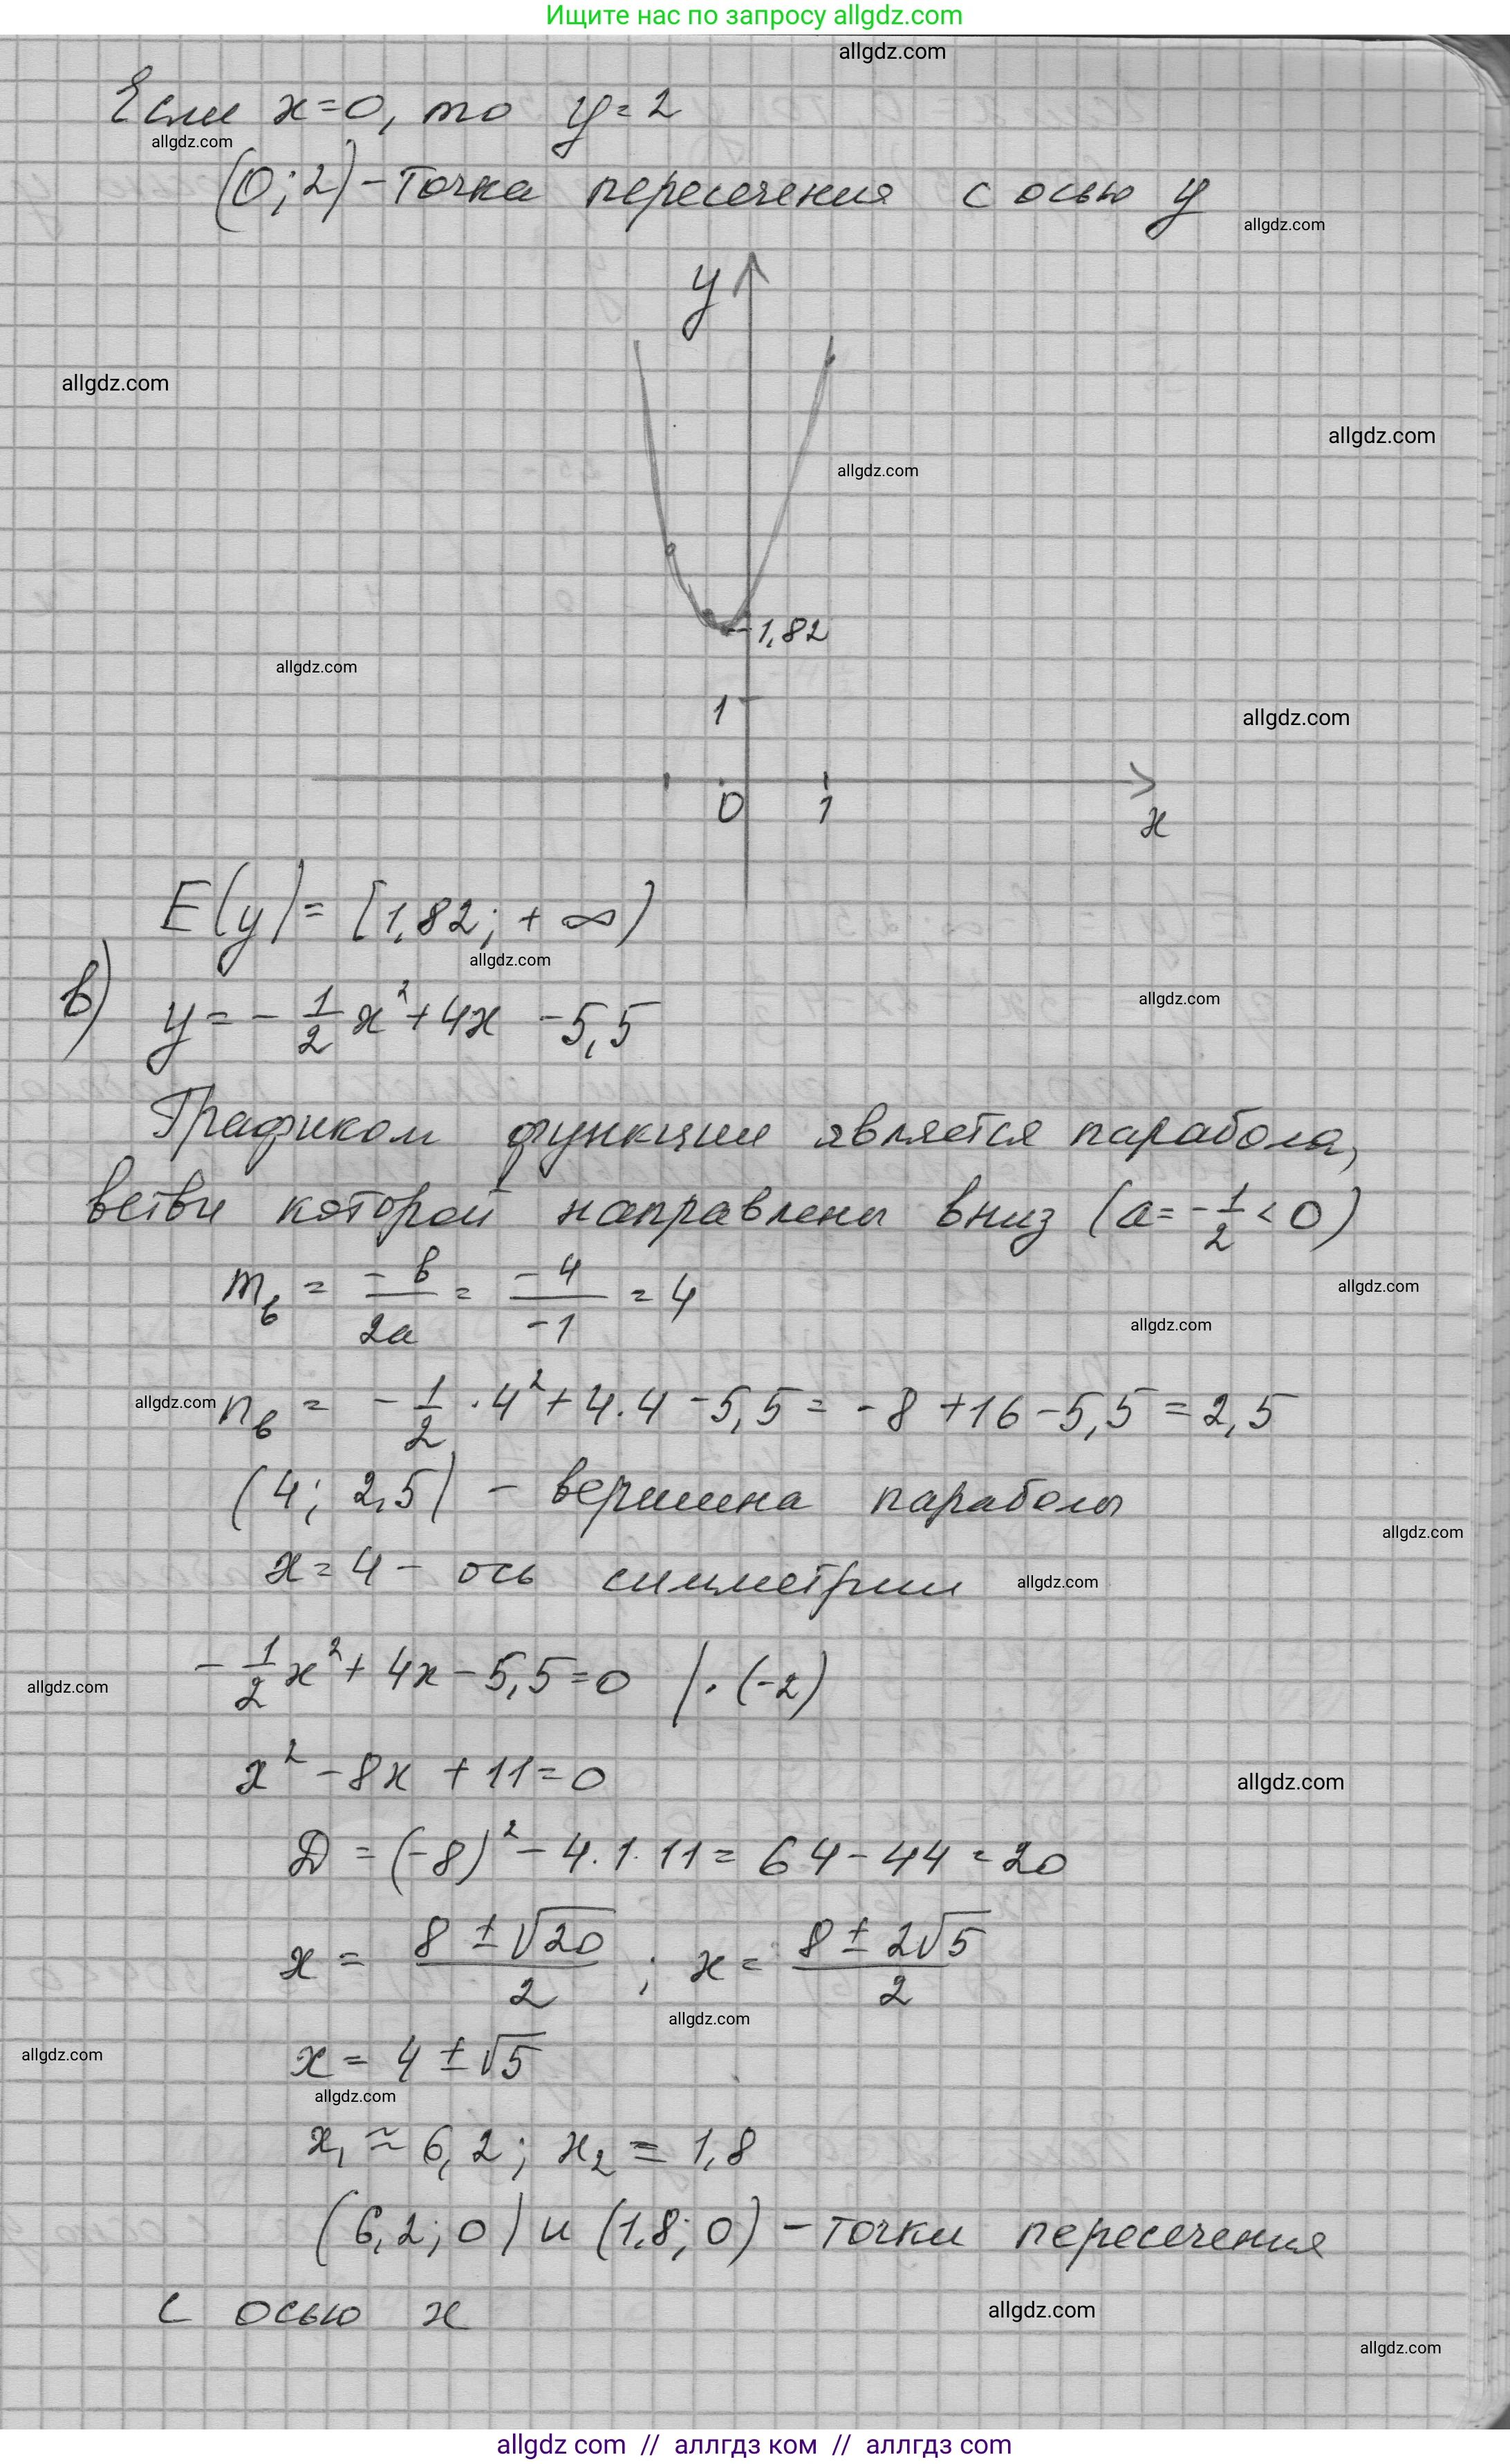 Ищите нас по запросу allgdz.com
allgdz.com
Если x=0, то y=2
allgdz.com
(0; 2) - Точка пересечения с осью y
allgdz.com
y
allgdz.com
allgdz.com
allgdz.com
1,82
allgdz.com
1
allgdz.com
0 1
x
E(y)= [1,82; + ∞)
allgdz.com
в) y = - 1/2 x² + 4x - 5,5
allgdz.com
Графиком функции является парабола,
ветви которой направлены вниз (a = - 1/2 < 0)
m в = -b/2a = -4/-1 = 4
allgdz.com
allgdz.com
allgdz.com
n в = - 1/2 · 4² + 4 · 4 - 5,5 = - 8 + 16 - 5,5 = 2,5
(4; 2,5) - вершина параболы
allgdz.com
x = 4 - ось симметрии
allgdz.com
- 1/2 x² + 4x - 5,5 = 0 | · (-2)
allgdz.com
x² - 8x + 11 = 0
allgdz.com
D = (-8)² - 4 · 1 · 11 = 64 - 44 = 20
x = 8 ± √20 / 2 ; x = 8 ± 2√5 / 2
allgdz.com
x = 4 ± √5
allgdz.com
allgdz.com
x₁ ≈ 6,2; x₂ = 1,8
(6,2; 0) и (1,8; 0) - точки пересечения
с осью x
allgdz.com
allgdz.com
allgdz com // аллгдз ком // аллгдз com